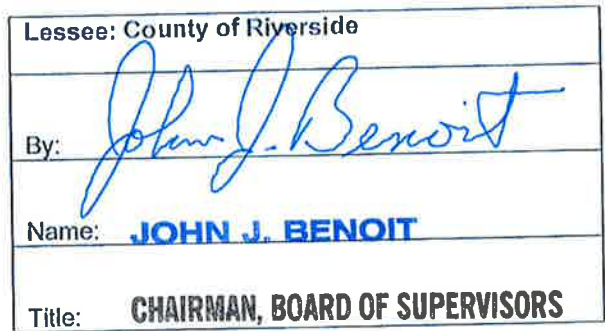 Lessee: County of Riverside
By: John J. Benoit
Name: JOHN J. BENOIT
Title: CHAIRMAN, BOARD OF SUPERVISORS